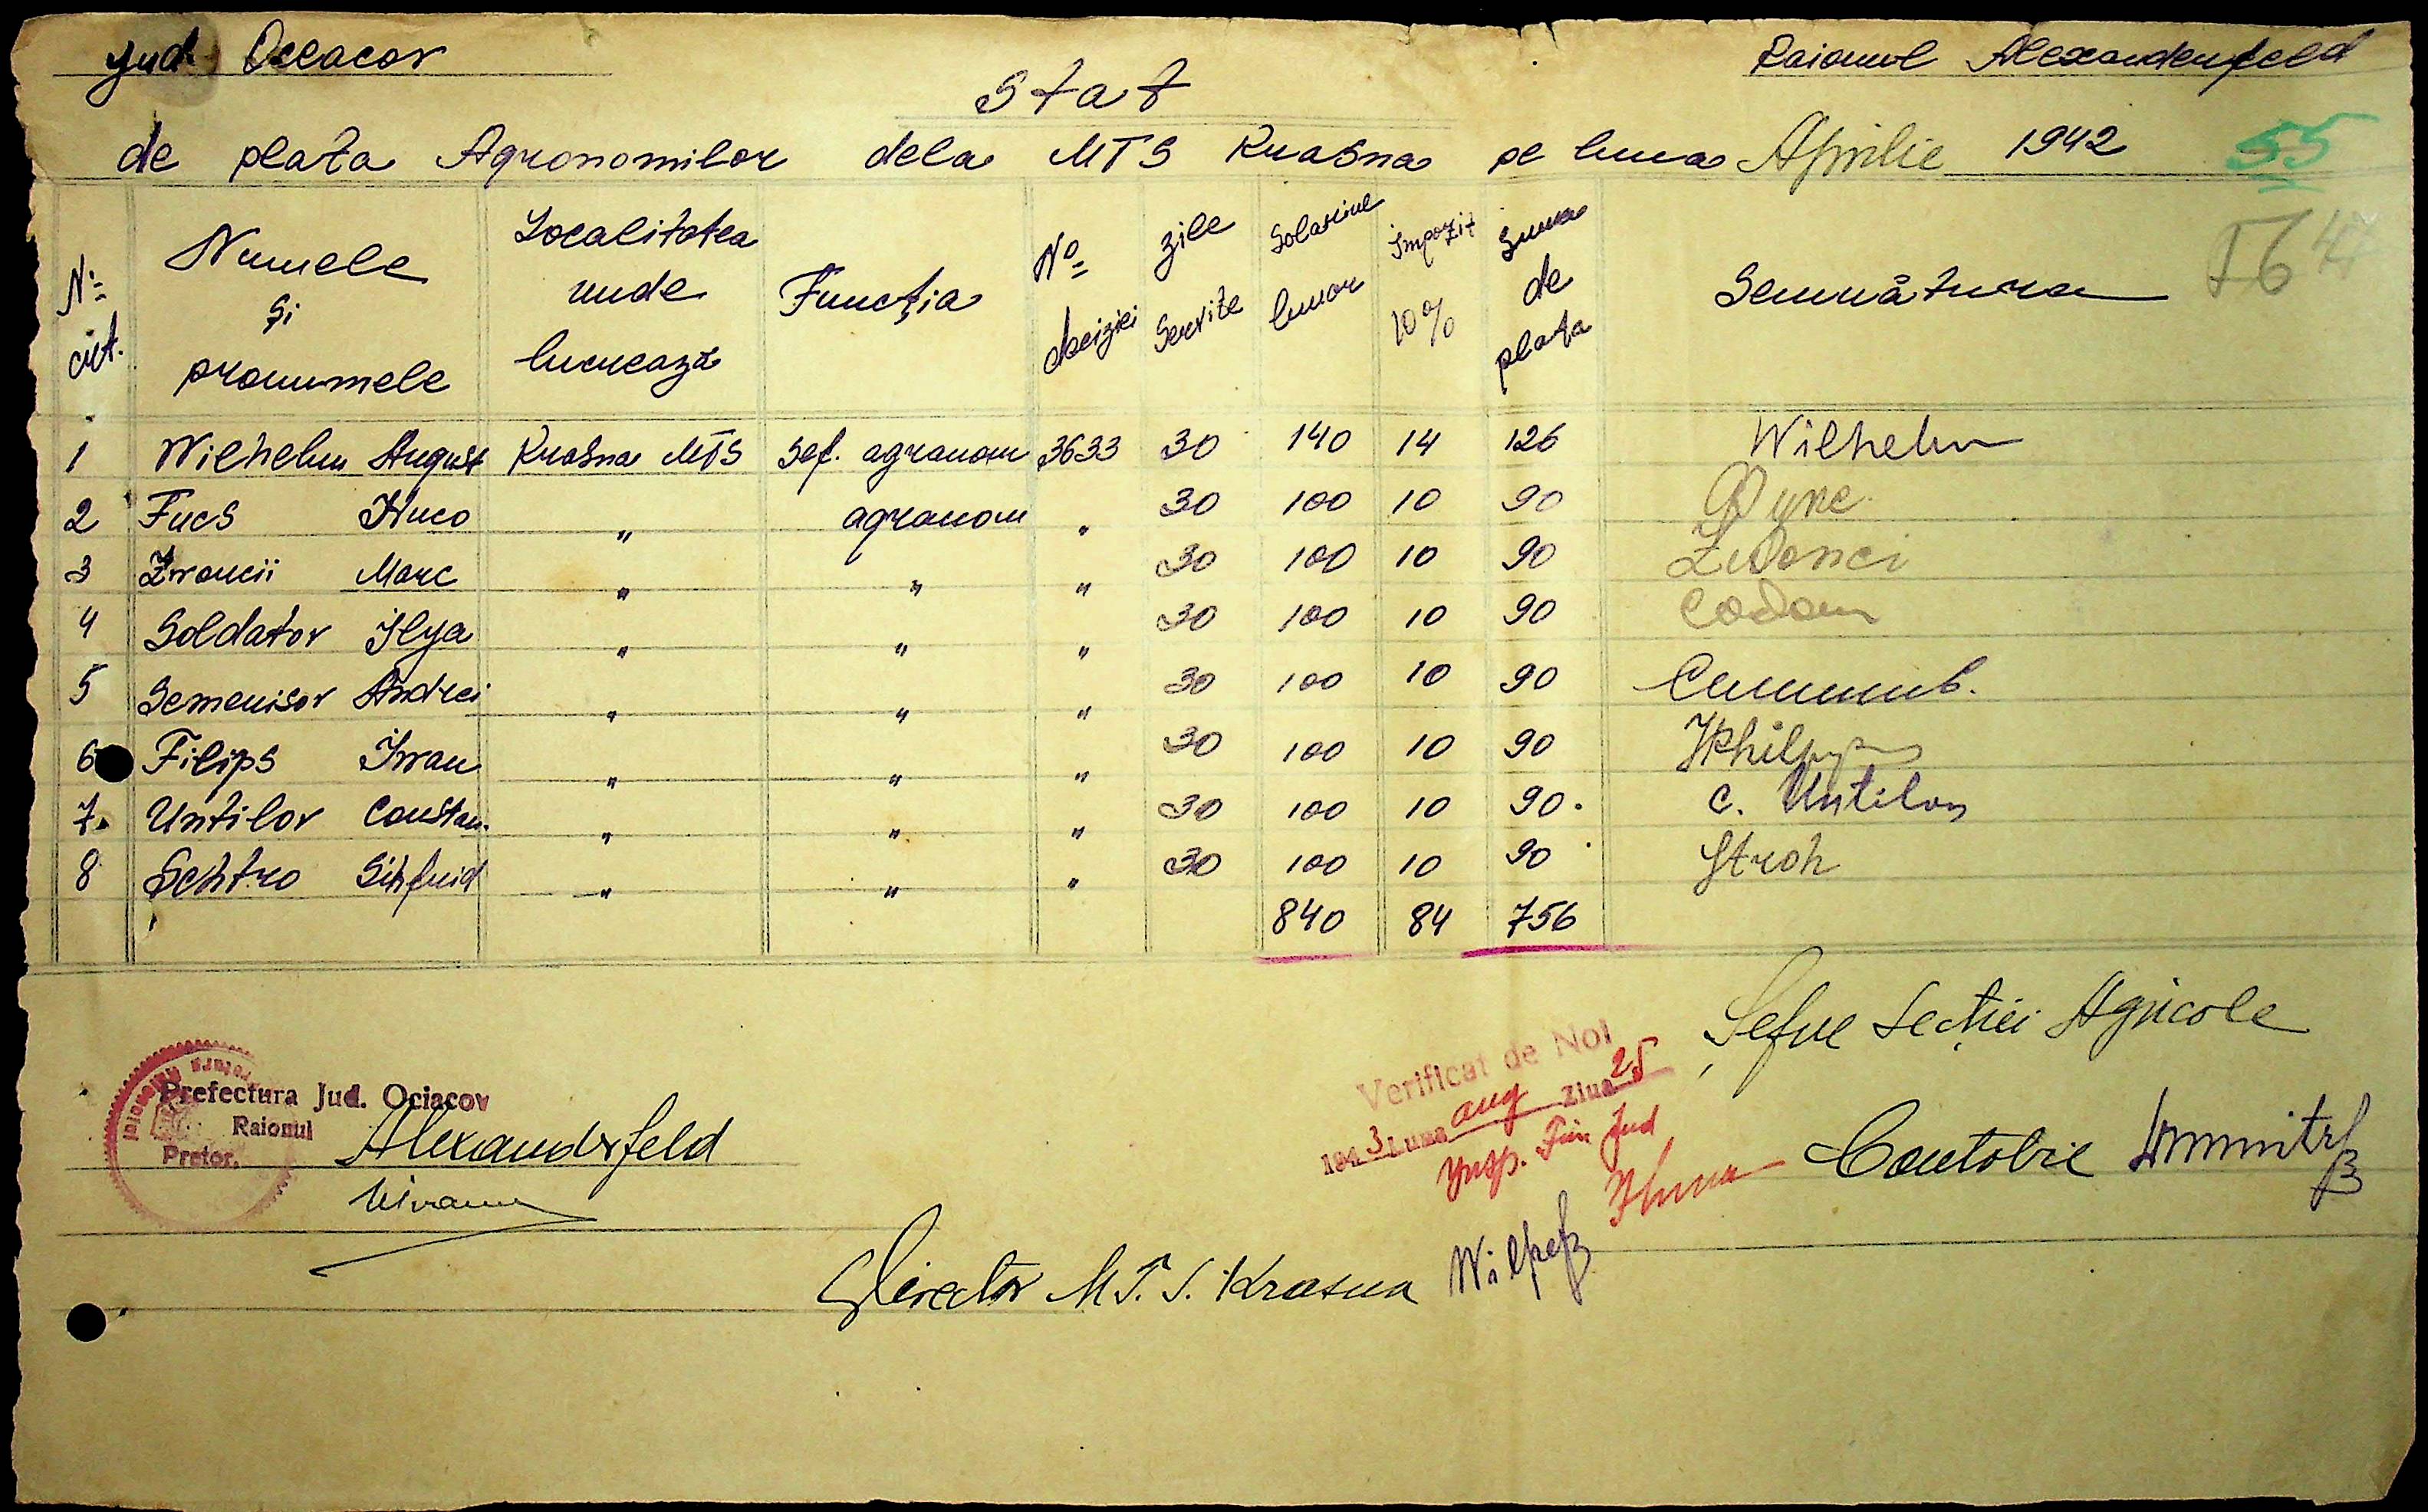 Jud Oceacov
Raionul Alexanderfeld
Stat
de plata Agronomilor dela MTS Krasna pe luna Aprilie 1942
55
56
No crt. Numele și pronumele Localitatea unde lucrează Funcția No deciziei zile Servite Solariul lunar Impozit 10% Suma de plata Semnătura
1 Wilhelm August Krasna MTS Sef. agranom 3633 30 140 14 126 Wilhelm
2 Fucs Huco " agranom " 30 100 10 90
3 Zvancii Marc " " " 30 100 10 90
4 Soldator Ilya " " " 30 100 10 90
5 Semenisov Andrei " " " 30 100 10 90
6 Filips Ivan " " " 30 100 10 90
7. Untilov Constan. " " " 30 100 10 90. C. Untilov
8 Schtro Sihfrid " " " 30 100 10 90 Stroh
840 84 756
Șeful Secției Agricole
Verificat de Noi
1943 Luna aug Ziua 25
Insp. Fin Jud
Prefectura Jud. Ociacov
Raionul
Pretor.
Alexanderfeld
Contabil
Director M.T.S. Krasna